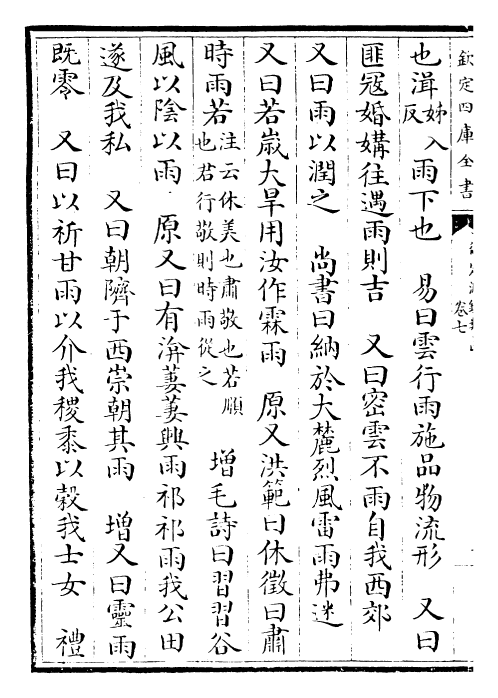 欽定四庫全書
卷七
也湒姊入反雨下也 易曰雲行雨施品物流形 又曰
匪冦婚媾往遇雨則吉 又曰密雲不雨自我西郊
又曰雨以潤之 尚書曰納於大麓烈風雷雨弗迷
又曰若嵗大旱用汝作霖雨 原又洪範曰休徵曰肅
時雨若注云休美也肅敬也若順也君行敬則時雨從之 增毛詩曰習習谷
風以陰以雨 原又曰有渰萋萋興雨祁祁雨我公田
遂及我私 又曰朝隮于西崇朝其雨 增又曰靈雨
既零 又曰以祈甘雨以介我稷黍以穀我士女 禮